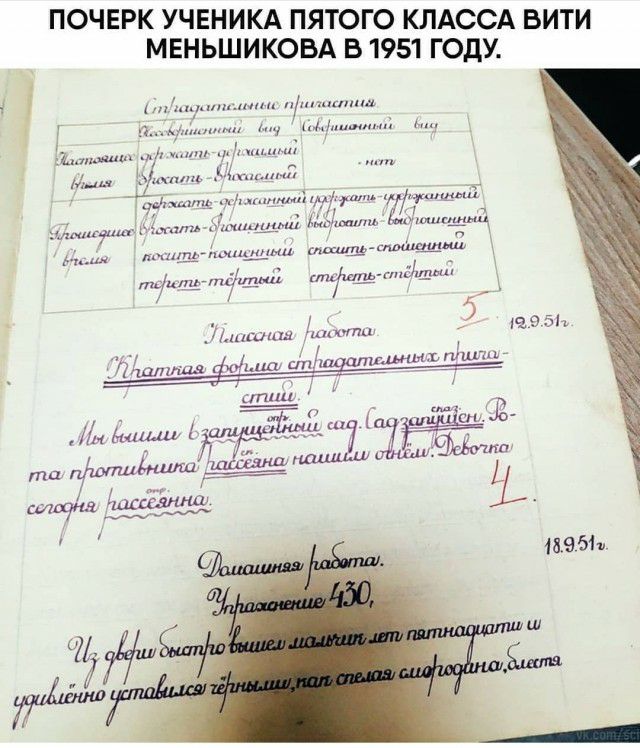 ПОЧЕРК УЧЕНИКА ПЯТОГО КЛАССА ВИТИ
МЕНЬШИКОВА В 1951 ГОДУ.
Страдательные причастия
Несовершенный вид Совершенный вид
Настоящее держать-держимый - нет
Время бросать-бросаемый
держать-держанный удержать-удержанный
Прошедшее бросать-брошенный выбросить-выброшенный
Время косить-кошенный скосить-скошенный
тереть-тёртый стереть-стёртый
5
12.9.51г.
Классная работа.
Краткая форма страдательных прича-
стий.
опр. сказ.
Мы вышли в запущенный сад. Сад запущен. Ро-
ск.
та противника рассеяна нашим огнём. Девочка
опр.
сегодня рассеянна.
4
18.9.51г.
Домашняя работа.
Упражнение 430,
Из двери быстро вышел мальчик лет пятнадцати и
удивлённо уставился чёрными, как спелая смородина, блестя
vk.com/sci